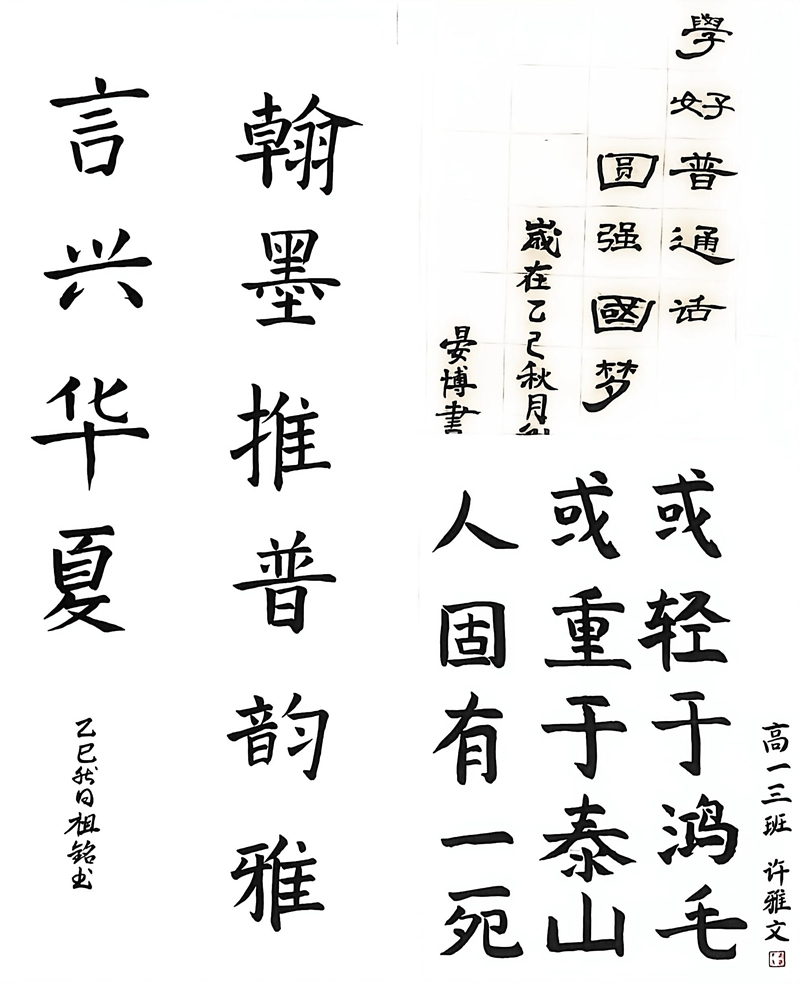 翰墨推普韵雅
言兴华夏
乙巳秋日祖铭书
學好普通话
圆强國梦
嵗在乙巳秋月
晏博書
人固有一死
或重于泰山
或轻于鸿毛
高一三班 许雅文